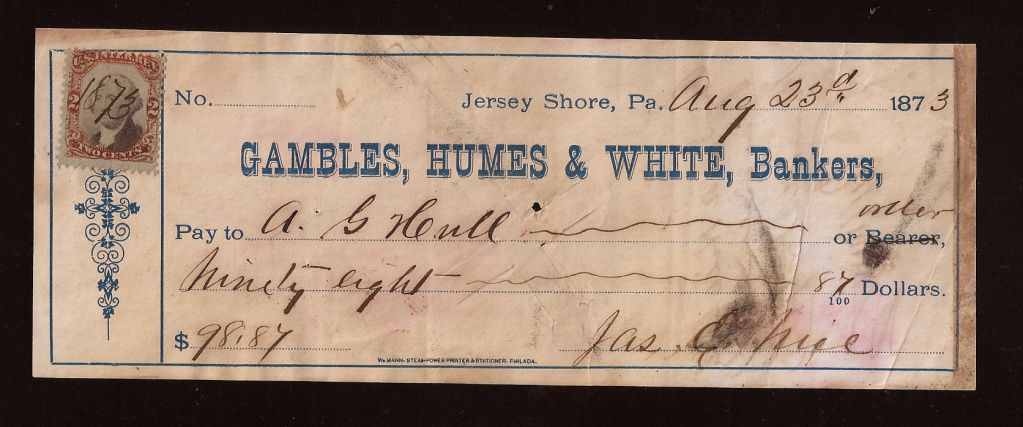 U.S. INTER. REV.
1873
TWO CENTS
No. Jersey Shore, Pa. Aug 23d 1873
GAMBLES, HUMES & WHITE, Bankers,
order
Pay to A. G Hull or Bearer,
Ninety eight 87/100 Dollars.
$ 98.87 Jas. E.
WM. MANN. STEAM-POWER PRINTER & STATIONER, PHILADA.